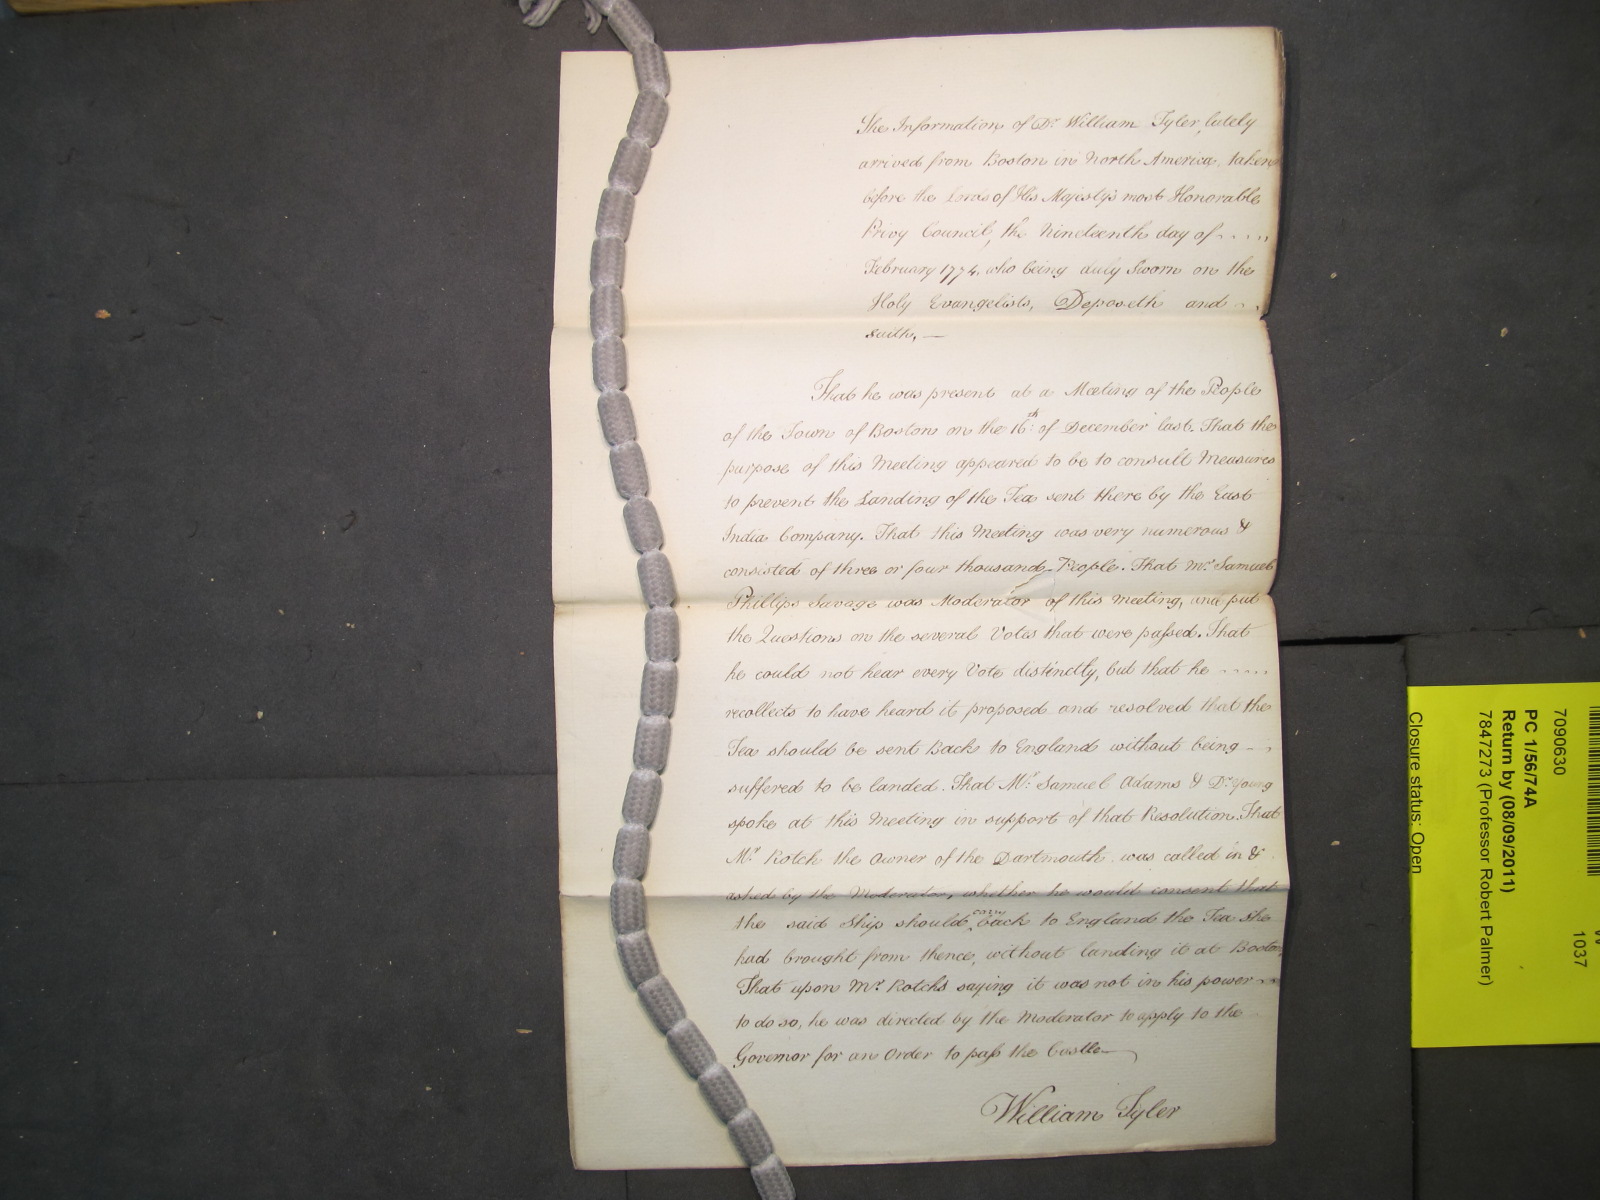 The Information of Dr. William Tyler, lately
arrived from Boston in North America, taken
before the Lords of His Majesty's most Honorable
Privy Council, the Nineteenth day of .....
February 1774. who being duly Sworn on the
Holy Evangelists, Deposeth and ...
saith, —
That he was present at a Meeting of the People
of the Town of Boston on the 16th: of December last. That the
purpose of this Meeting appeared to be to consult Measures
to prevent the Landing of the Tea sent there by the East
India Company. That this Meeting was very numerous &
consisted of three or four thousand People. That Mr. Samuel
Phillips Savage was Moderator of this Meeting, and put
the Questions on the several Votes that were passed. That
he could not hear every Vote distinctly, but that he .....
recollects to have heard it proposed and resolved that the
Tea should be sent Back to England without being —
suffered to be landed. That Mr. Samuel Adams & Dr. Young
spoke at this Meeting in support of that Resolution. That
Mr. Rotch the Owner of the Dartmouth was called in &
asked by the Moderator, whether he would consent that
the said Ship should carry back to England the Tea She
had brought from thence, without landing it at Boston,
That upon Mr. Rotch's saying it was not in his power —
to do so, he was directed by the Moderator to apply to the
Governor for an Order to pass the Castle —
William Tyler
7090630
PC 1/56/74A
Return by (08/09/2011)
7847273 (Professor Robert Palmer)
Closure status: Open
1037